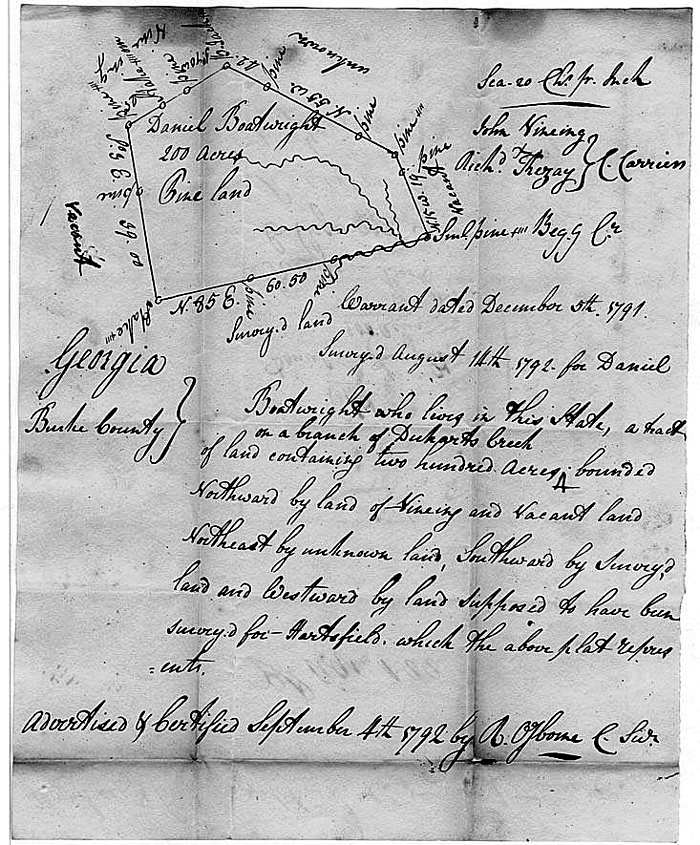 Sca-20 Chs. pr. Inch
John Vineing
Rich'd. Trezay } C. Carriers
unknown
N. 55 W.
pine
pine
pine
Vacant
Daniel Boatwright
200 Acres
Pine land
pine
59.00
Vacant
Stake
N. 85 E.
pine
60.50
pine
Survey.d land
Sml. pine Beg.g Cr
Warrant dated December 5th. 1791.
Survey.d August 14th 1792. for Daniel
Georgia
Burke County }
Boatwright who lives in this State, a tract
on a branch of Duharts Creek
of land containing two hundred Acres, ^ bounded
Northward by land of Vineing and Vacant land
Northeast by unknown land, Southward by Survey'd
land and Westward by land supposed to have been
survey.d for Hartsfield. which the above plat repres
=ents.
Advertised & Certified September 4th 1792 by R. Osborne C. Sur.